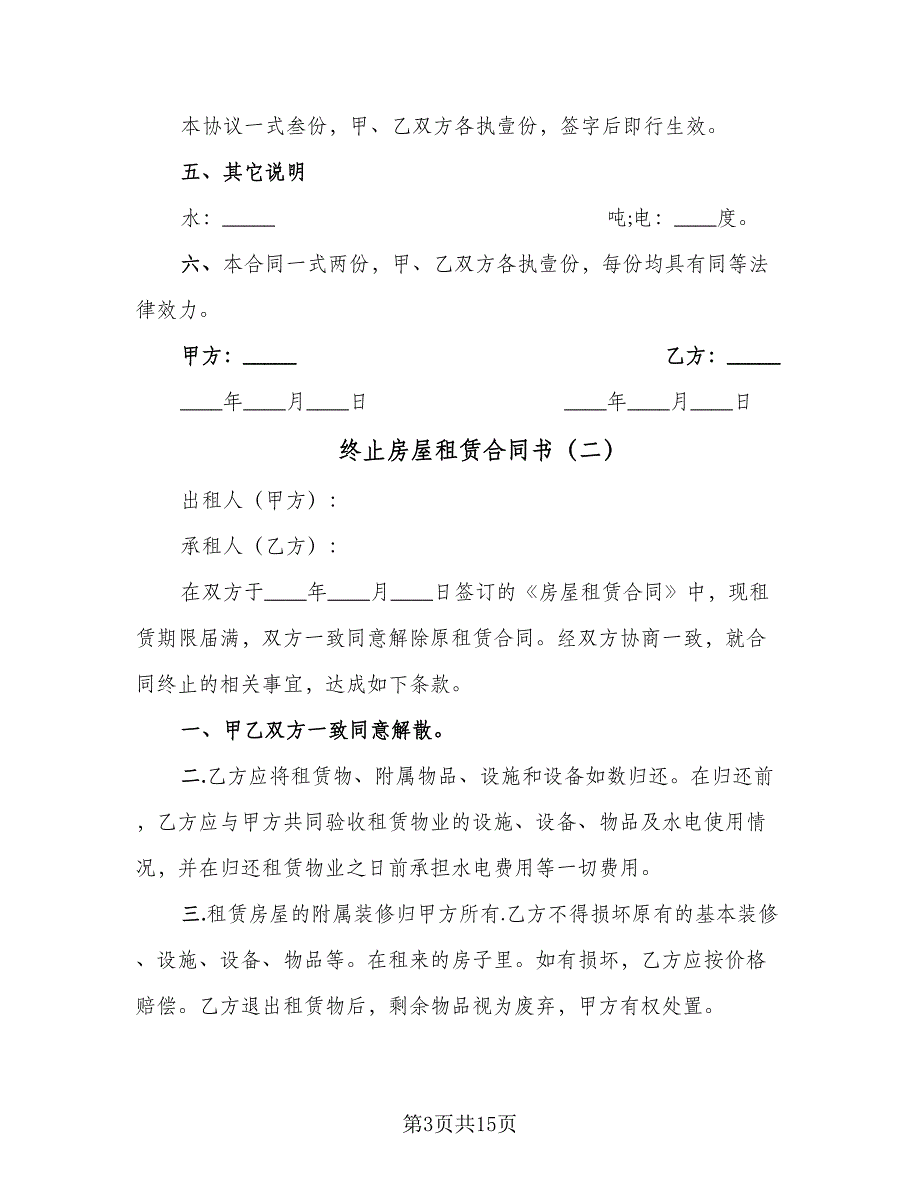 本协议一式叁份，甲、乙双方各执壹份，签字后即行生效。
五、其它说明
水：_____ 吨;电：____度。
六、本合同一式两份，甲、乙双方各执壹份，每份均具有同等法
律效力。
甲方：_____ 乙方：_____
____年____月____日 ____年____月____日
终止房屋租赁合同书（二）
出租人（甲方）：
承租人（乙方）：
在双方于____年____月____日签订的《房屋租赁合同》中，现租
赁期限届满，双方一致同意解除原租赁合同。经双方协商一致，就合
同终止的相关事宜，达成如下条款。
一、甲乙双方一致同意解散。
二.乙方应将租赁物、附属物品、设施和设备如数归还。在归还前
，乙方应与甲方共同验收租赁物业的设施、设备、物品及水电使用情
况，并在归还租赁物业之日前承担水电费用等一切费用。
三.租赁房屋的附属装修归甲方所有.乙方不得损坏原有的基本装修
、设施、设备、物品等。在租来的房子里。如有损坏，乙方应按价格
赔偿。乙方退出租赁物后，剩余物品视为废弃，甲方有权处置。
第3页共15页